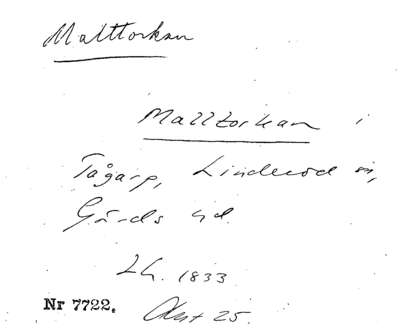 Malttorkan
Malltorkan i
Tågarp, Linderöd sn,
Gärds hd.
Lh. 1833
Nr 7722. Akt 25.